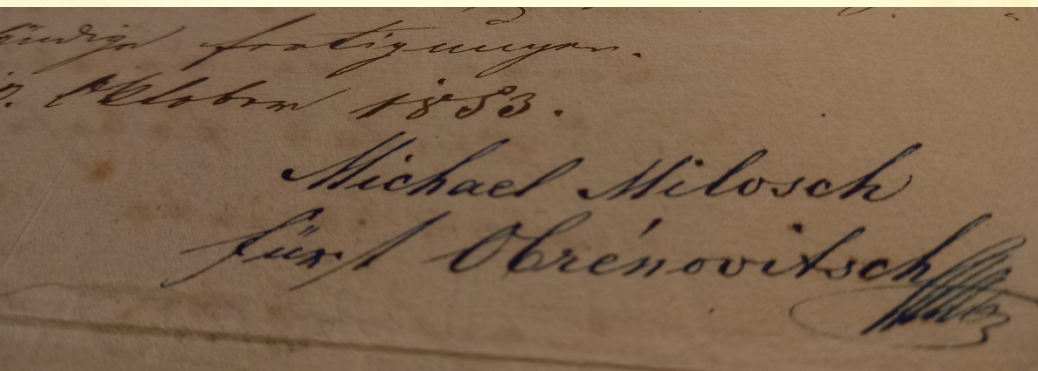 fertigungen.
Oktober 1853.
Michael Milosch
fürst Obrénovitsch